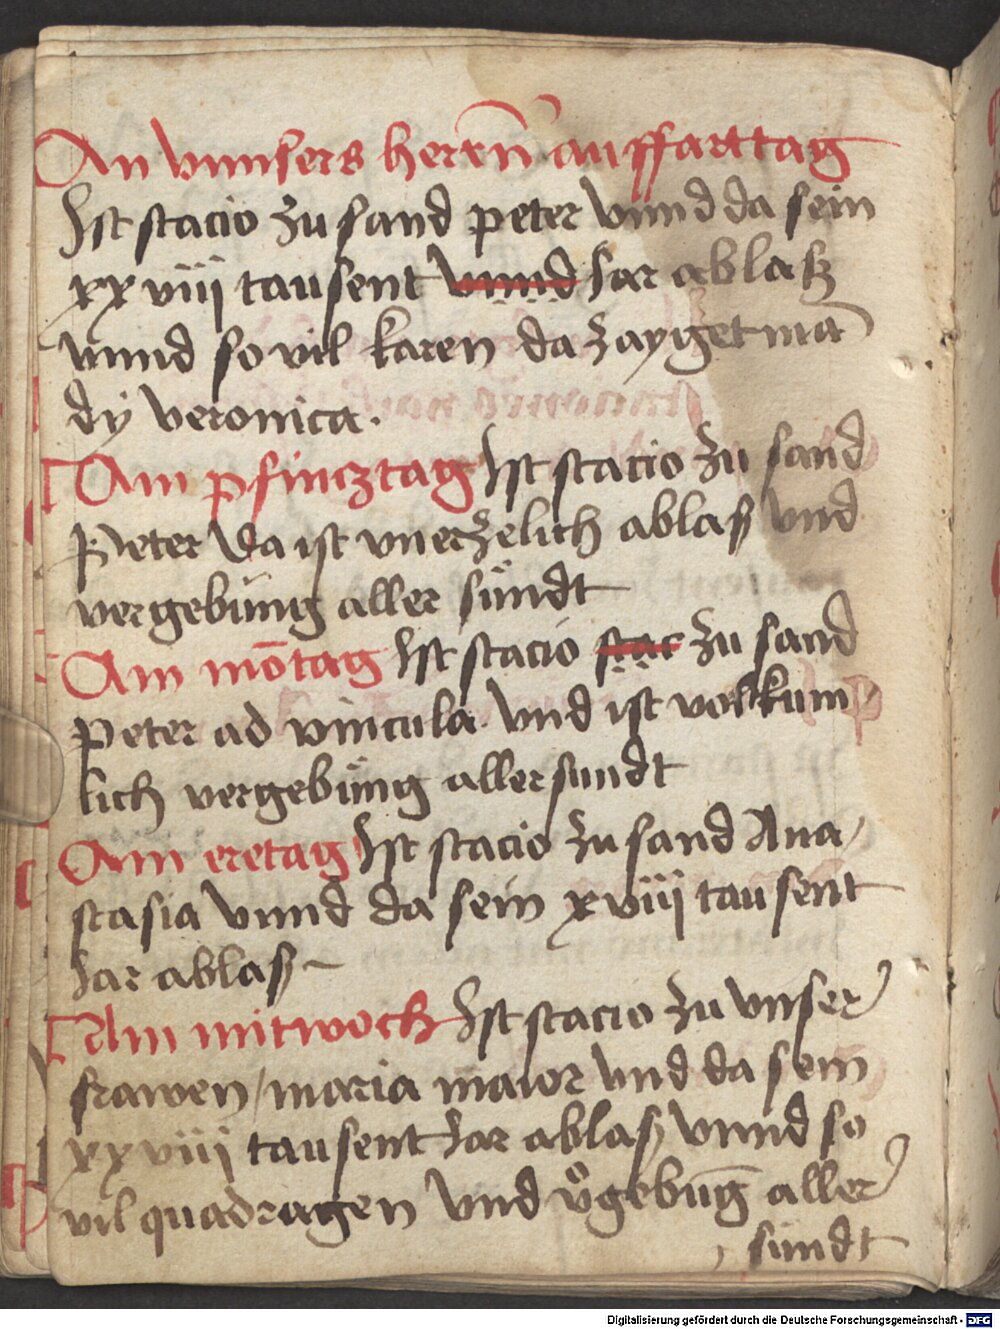 An vnnsers herrn̄ auffarttag
Ist stacio zu sand peter vnnd da sein
xxviiij tausent vnnd Jar ablasz
vnnd so vil karen da zayget mā
dy veronica.
Am pfincztag Ist stacio zu sand
Peter da ist vnerzelich ablasz vnd
vergebüng aller sündt
Am mōtag Ist stacio stac zu sand
peter ad vincula vnd ist volkum
lich vergebüng aller sundt
Am eretag Ist stacio zu sand Ana/
stasia vnnd da sein xviiij tausent
Jar ablasz
Am mitwoch Ist stacio zu vnser
frawen / maria maior vnd da sein
xxviiij tausent Jar ablasz vnnd so
vil quadragen vnd v̊gebūg aller
sündt
Digitalisierung gefördert durch die Deutsche Forschungsgemeinschaft - DFG